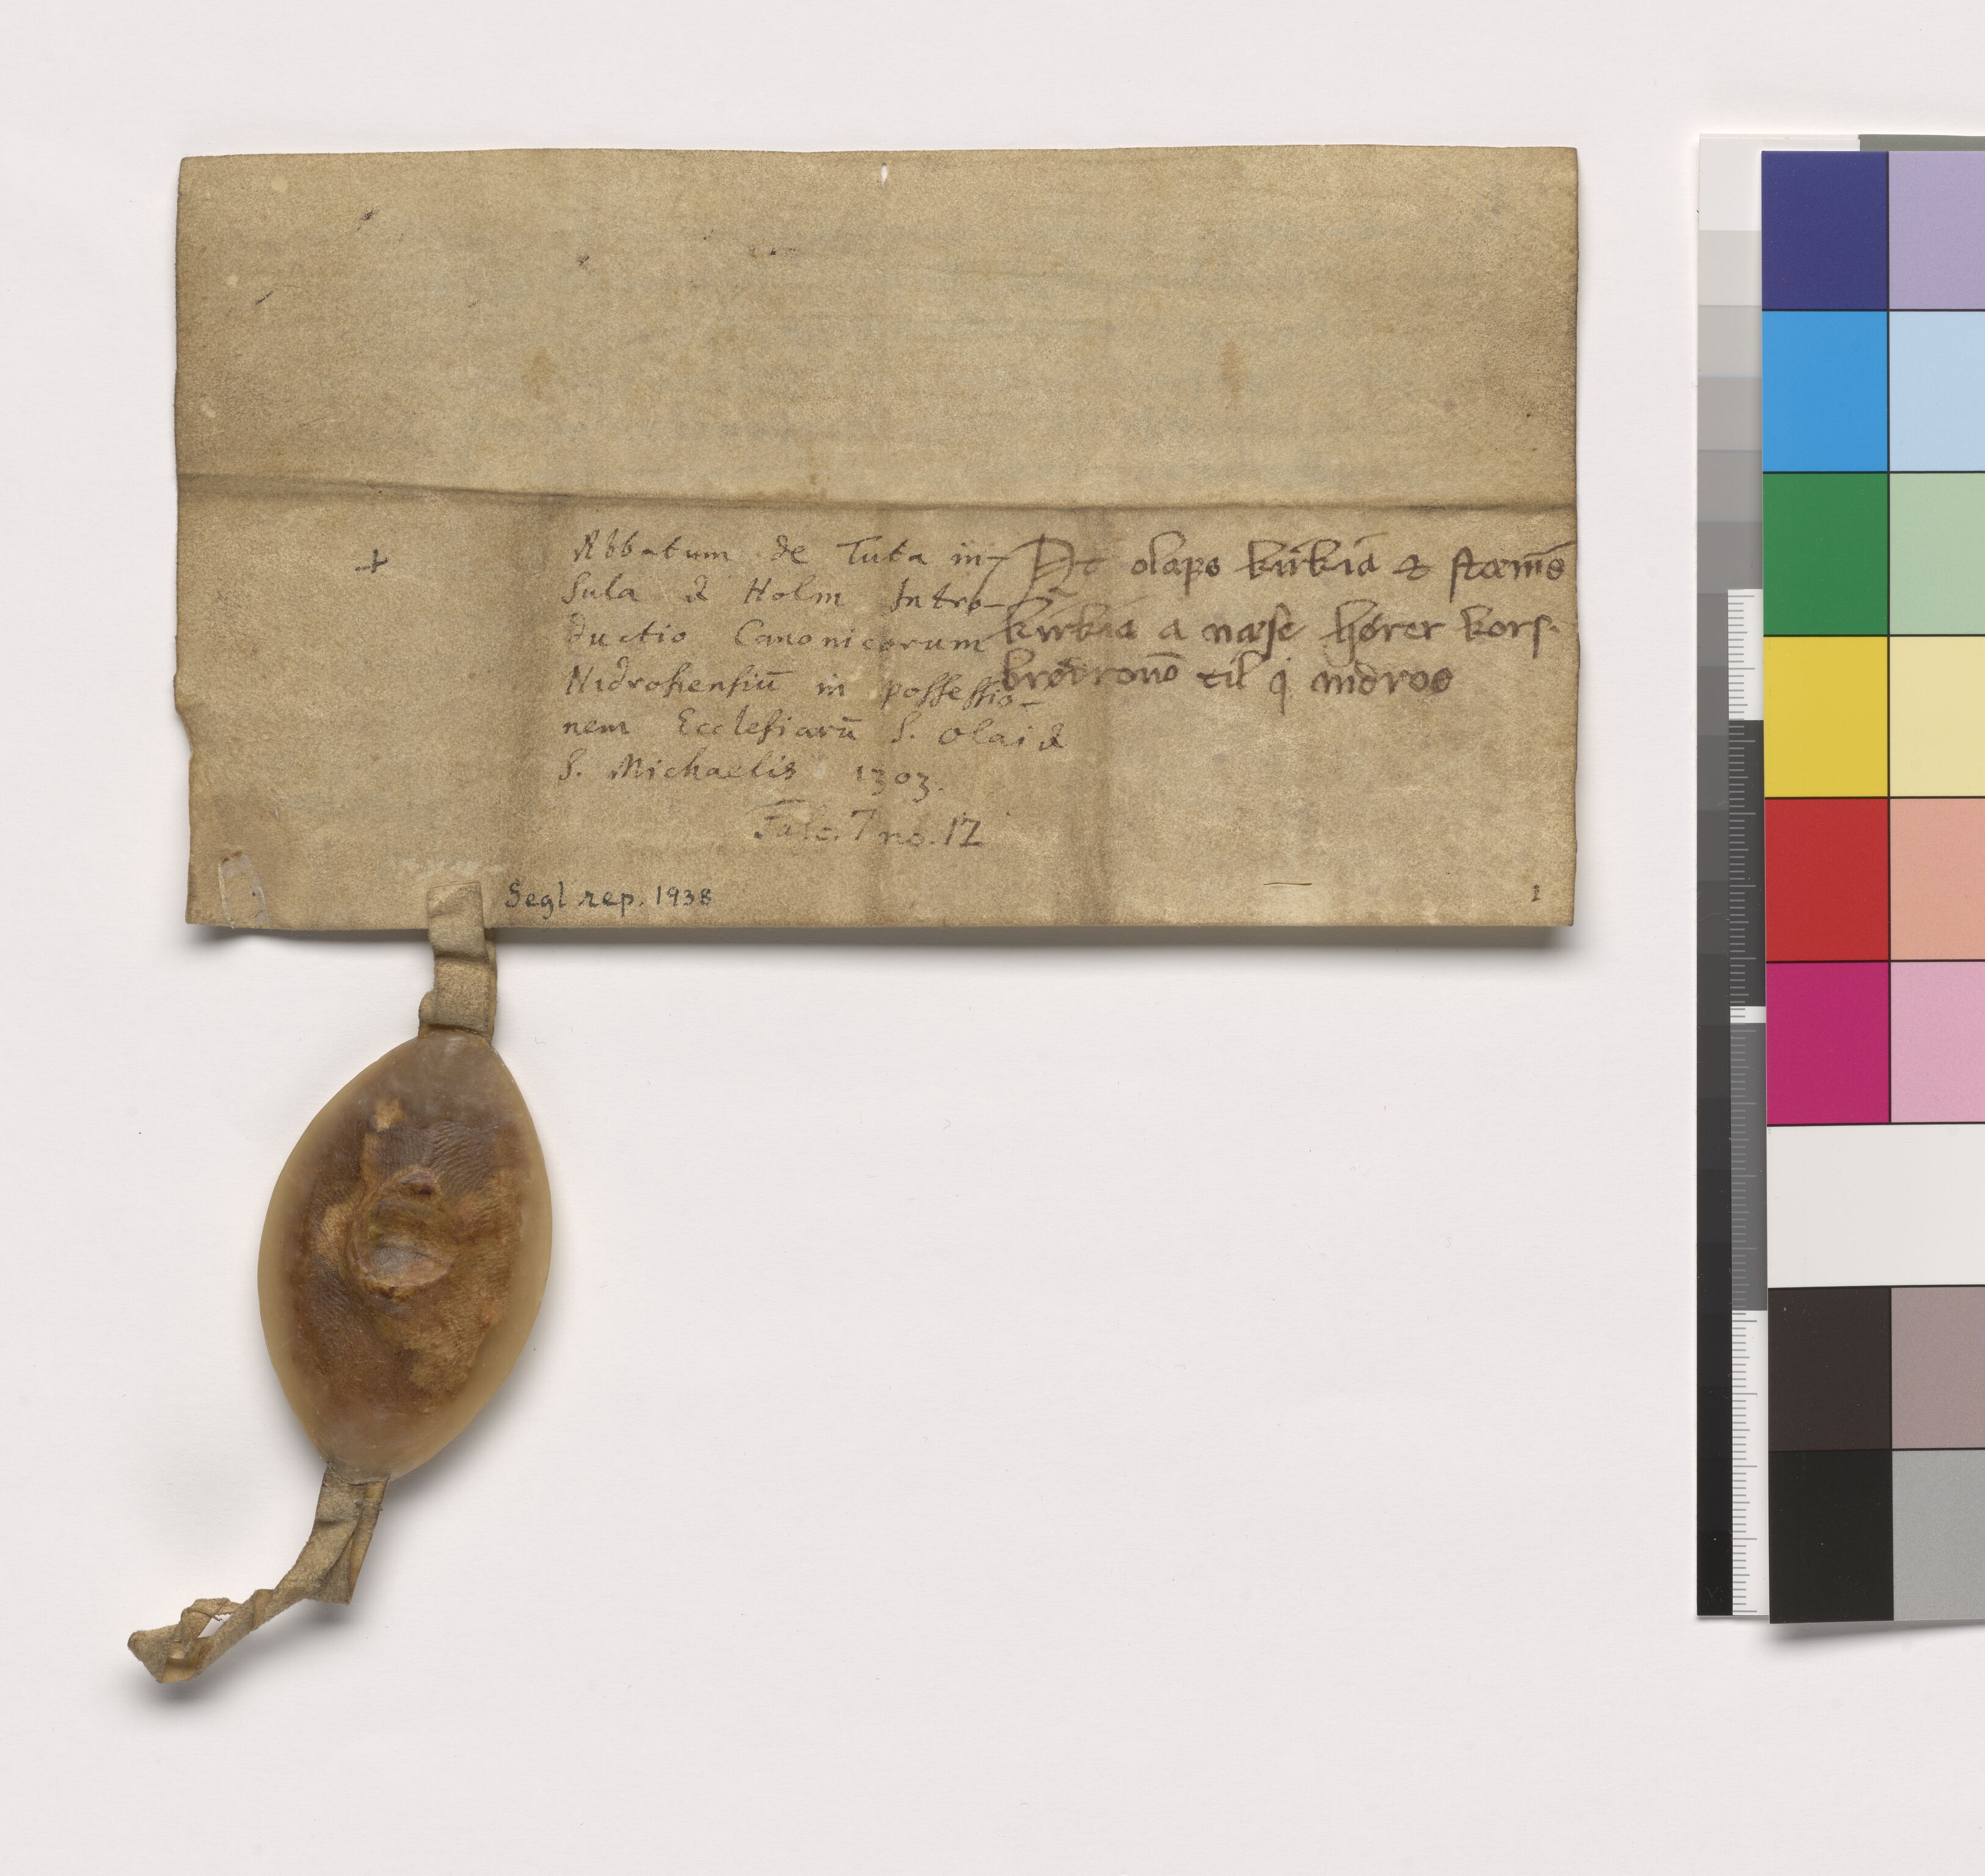 Abbatum de Tuta in-
sula & Holm Intro-
ductio Canonicorum
Nidrosiensiū in possessio-
nem Ecclesiarū S. Olai &
S. Michaelis 1303.
Fasc. 7 no. 12
At olaps kirkia &
kirkia a næse hører kors-
brødronō til j nidros
Segl rep. 1938
1